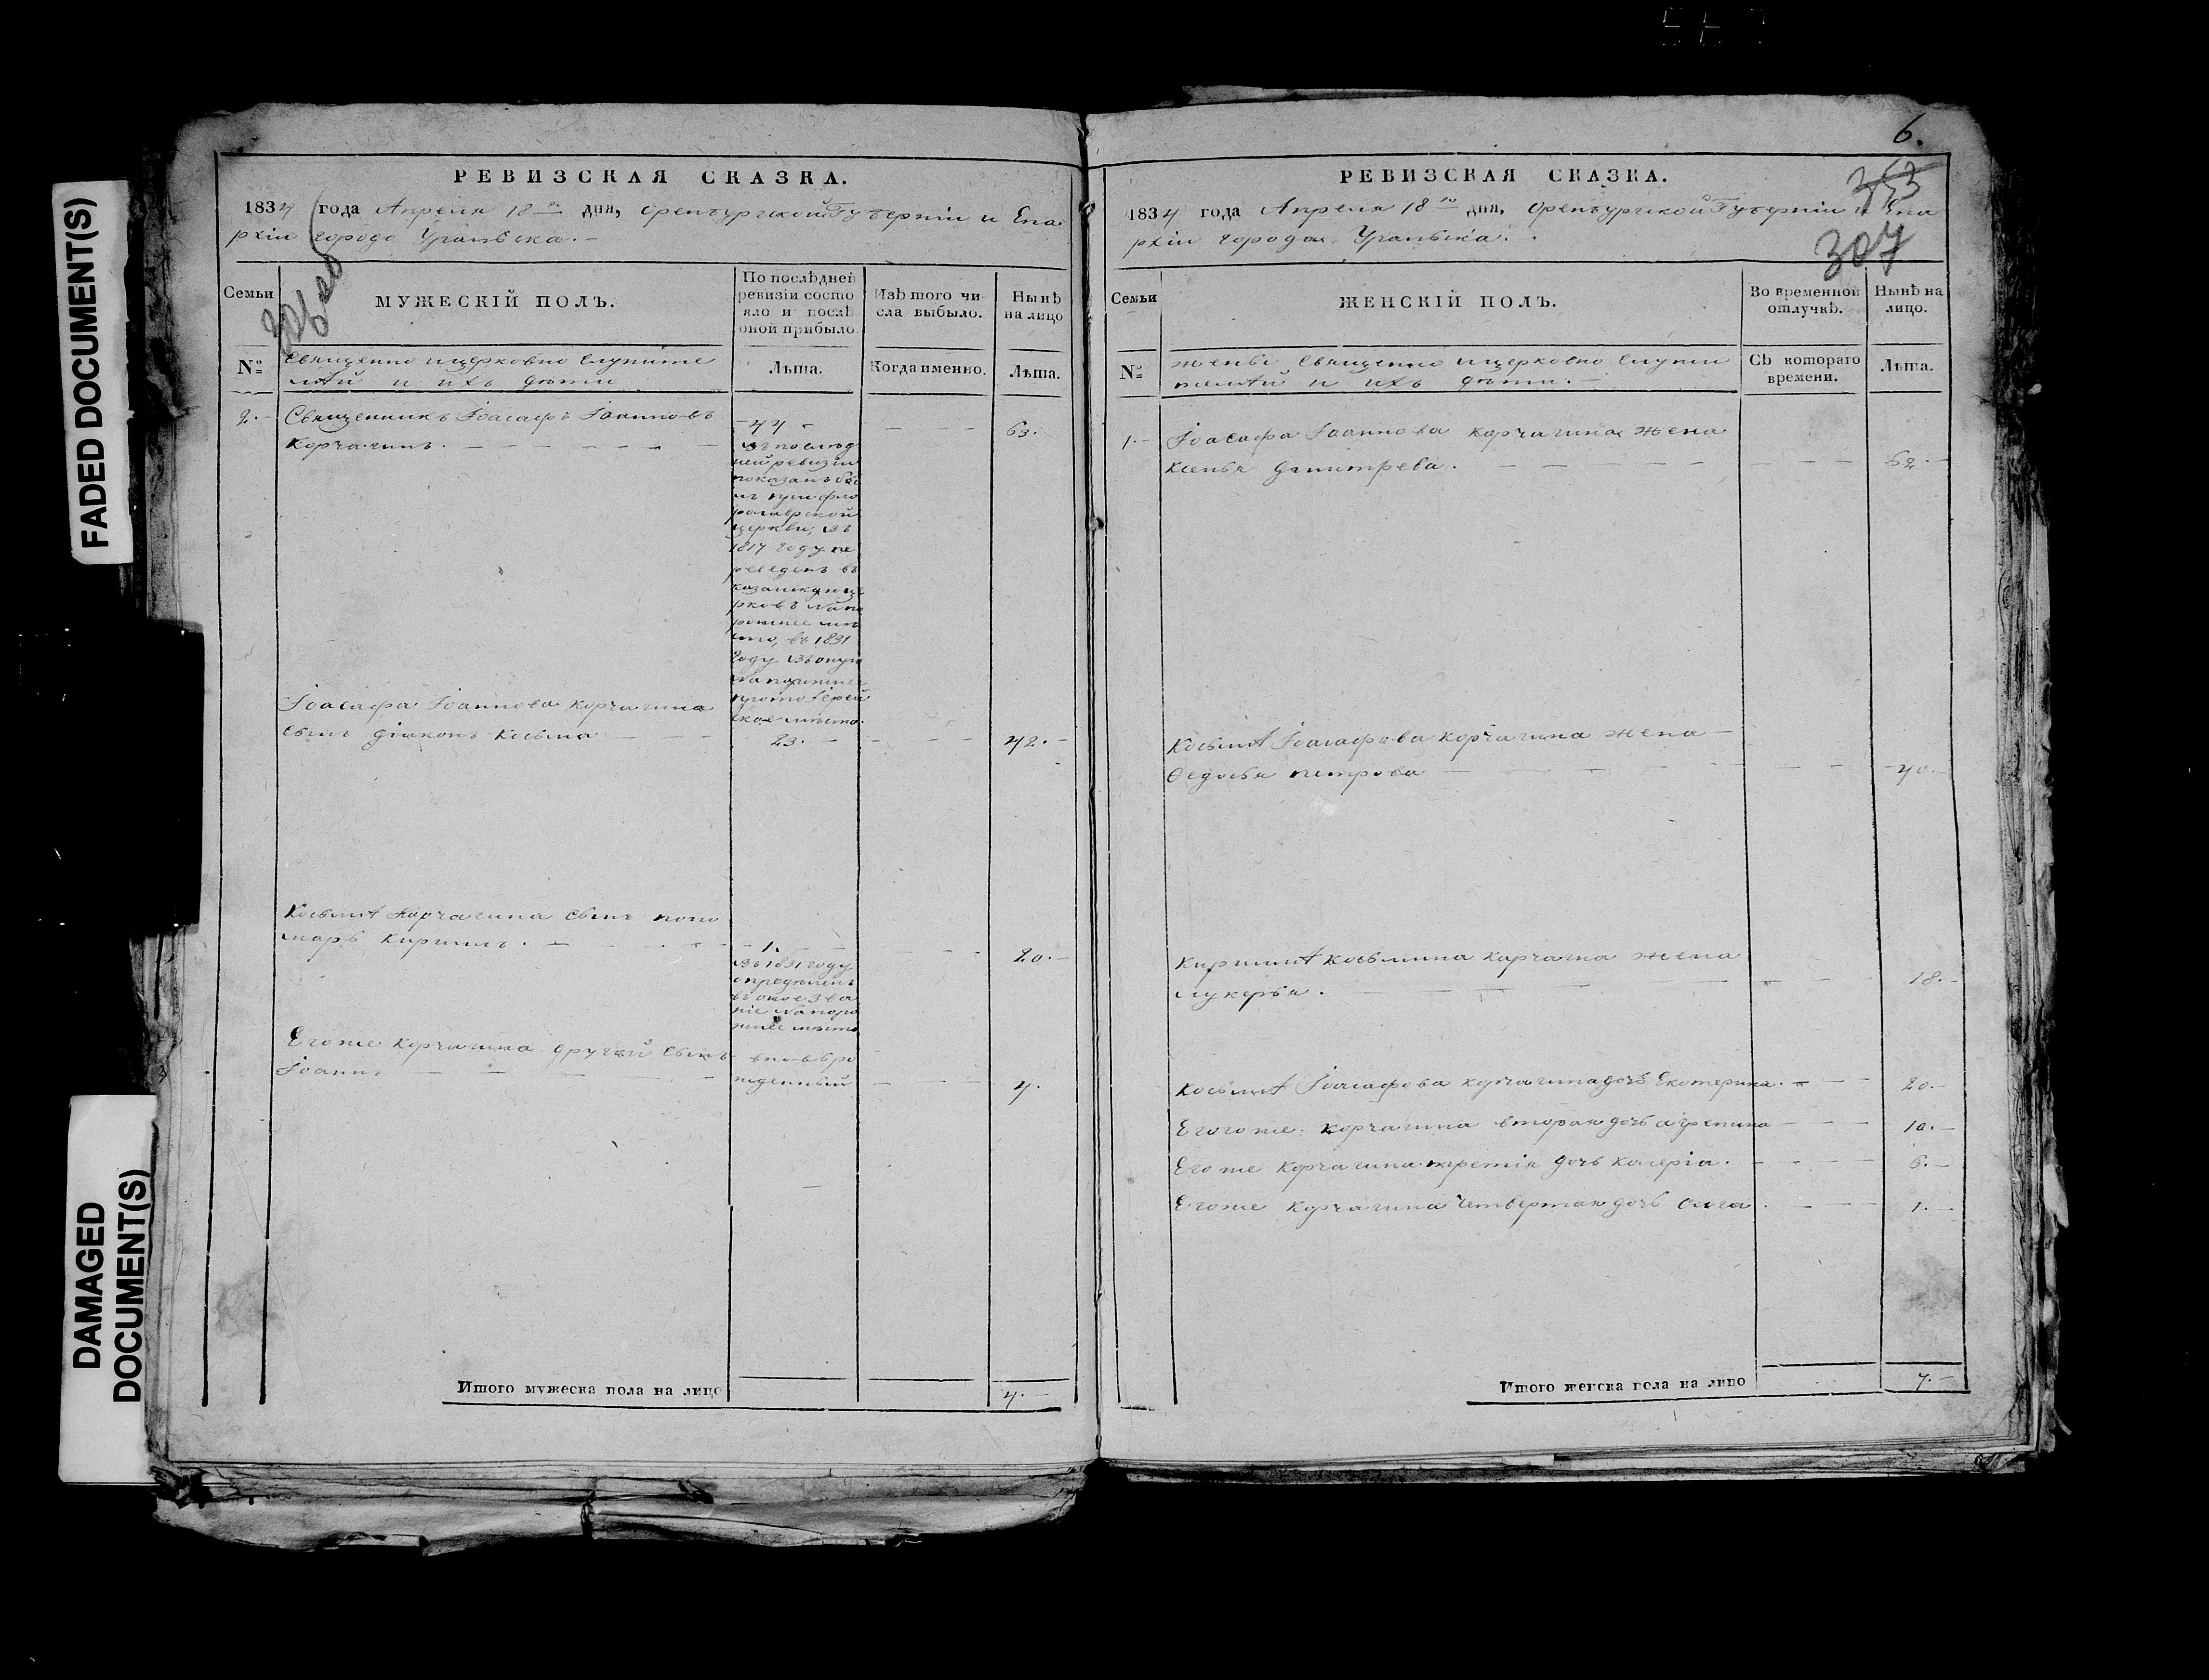 FADED DOCUMENT(S)
DAMAGED
DOCUMENT(S)
РЕВИЗСКАЯ СКАЗКА.
1834 года Апреля 18 го дня, Оренбургской Губерніи и Епа
рхіи города Уральска. –
306 об
Семьи
МУЖЕСКІЙ ПОЛЪ.
По послѣдней
ревизіи состо
яло и послѣ
оной прибыло
Изъ того чи-
сла выбыло.
Нынѣ
на лицо
№
Священно и церковно служите
лѣй и ихъ дѣти
Лѣта.
Когда именно.
Лѣта.
2. – Священникъ Іоасафъ Іоанновъ
Корчагинъ. – – – – –
– 44 –
– – –
63. –
въ послѣд
ней ревизіи
показанъ бы
лъ при фло
ролаврской
церкви, въ
1817 году пе
реведенъ въ
казанскую це
рковь на по
рожнее мѣ
сто, въ 1831
году въ оную
протоіерей
ское мѣсто.
Іоасафа Іоаннова Корчагина
сынъ діаконъ Косьма – – –
23. –
– – –
42. –
Косьмы Корчагина сынъ поно
марь Кириллъ. – – –
– 1. –
– – –
20. –
въ 1831 году
опредѣленъ
въ оное зва
ніе на поро
жнее мѣсто
Его же Корчагина другой сынъ
Іоаннъ – – – –
вновь ро
жденный
– – –
4.
Итого мужеска пола на лицо
4. –
6.
РЕВИЗСКАЯ СКАЗКА.
353
1834 года Апреля 18 го дня, Оренбургской Губерніи и Епа
рхіи города Уральска.
307
Семьи
ЖЕНСКІЙ ПОЛЪ.
Во временной
отлучкѣ.
Нынѣ на
лицо.
№
жены священно и церковно служи
телѣй и ихъ дѣти. –
Съ котораго
времени.
Лѣта.
1. – Іоасафа Іоаннова Корчагина жена
Ксенья Димитрева. – – – – – – –
62. –
Косьмы Іоасафова Корчагина жена –
Ѳедосья Петрова – – – – – –
40. –
Кирилла Косьмина Карчагна жена
Лукерья. – – – – –
18. –
Косьмы Іоасафова Корчагина дочь Екатерина. – – –
20. –
Егого же Корчагина вторая дочь Агрепина – – –
10. –
Его же Корчагина третія дочь Калерія. – – –
6. –
Его же Корчагина четвертая дочь Олга. – – –
1. –
Итого женска пола на лицо
7. –